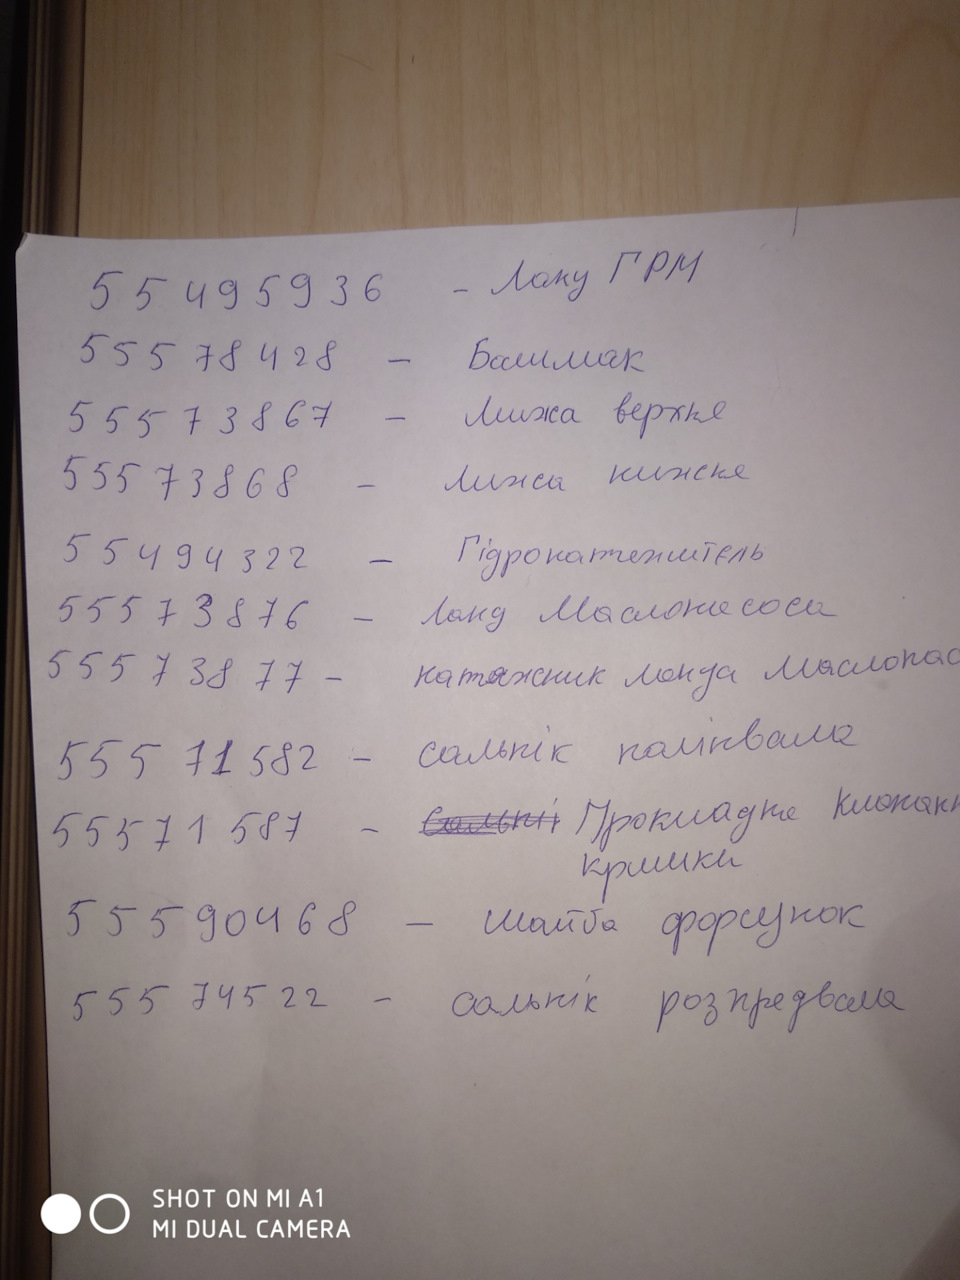 55495936 - Ланц ГРМ
55578428 - Башмак
55573867 - Лижа верхня
55573868 - лижа нижня
55494322 - Гідронатяжитель
55573876 - Ланц Маслонасоса
55573877 - натяжник ланца Маслонас
55571582 - сальнік колінвала
55571587 - Прокладка Клапан
кришки
55590468 - шайба форсунок
55574522 - сальнік розпредвала
SHOT ON MI A1
MI DUAL CAMERA